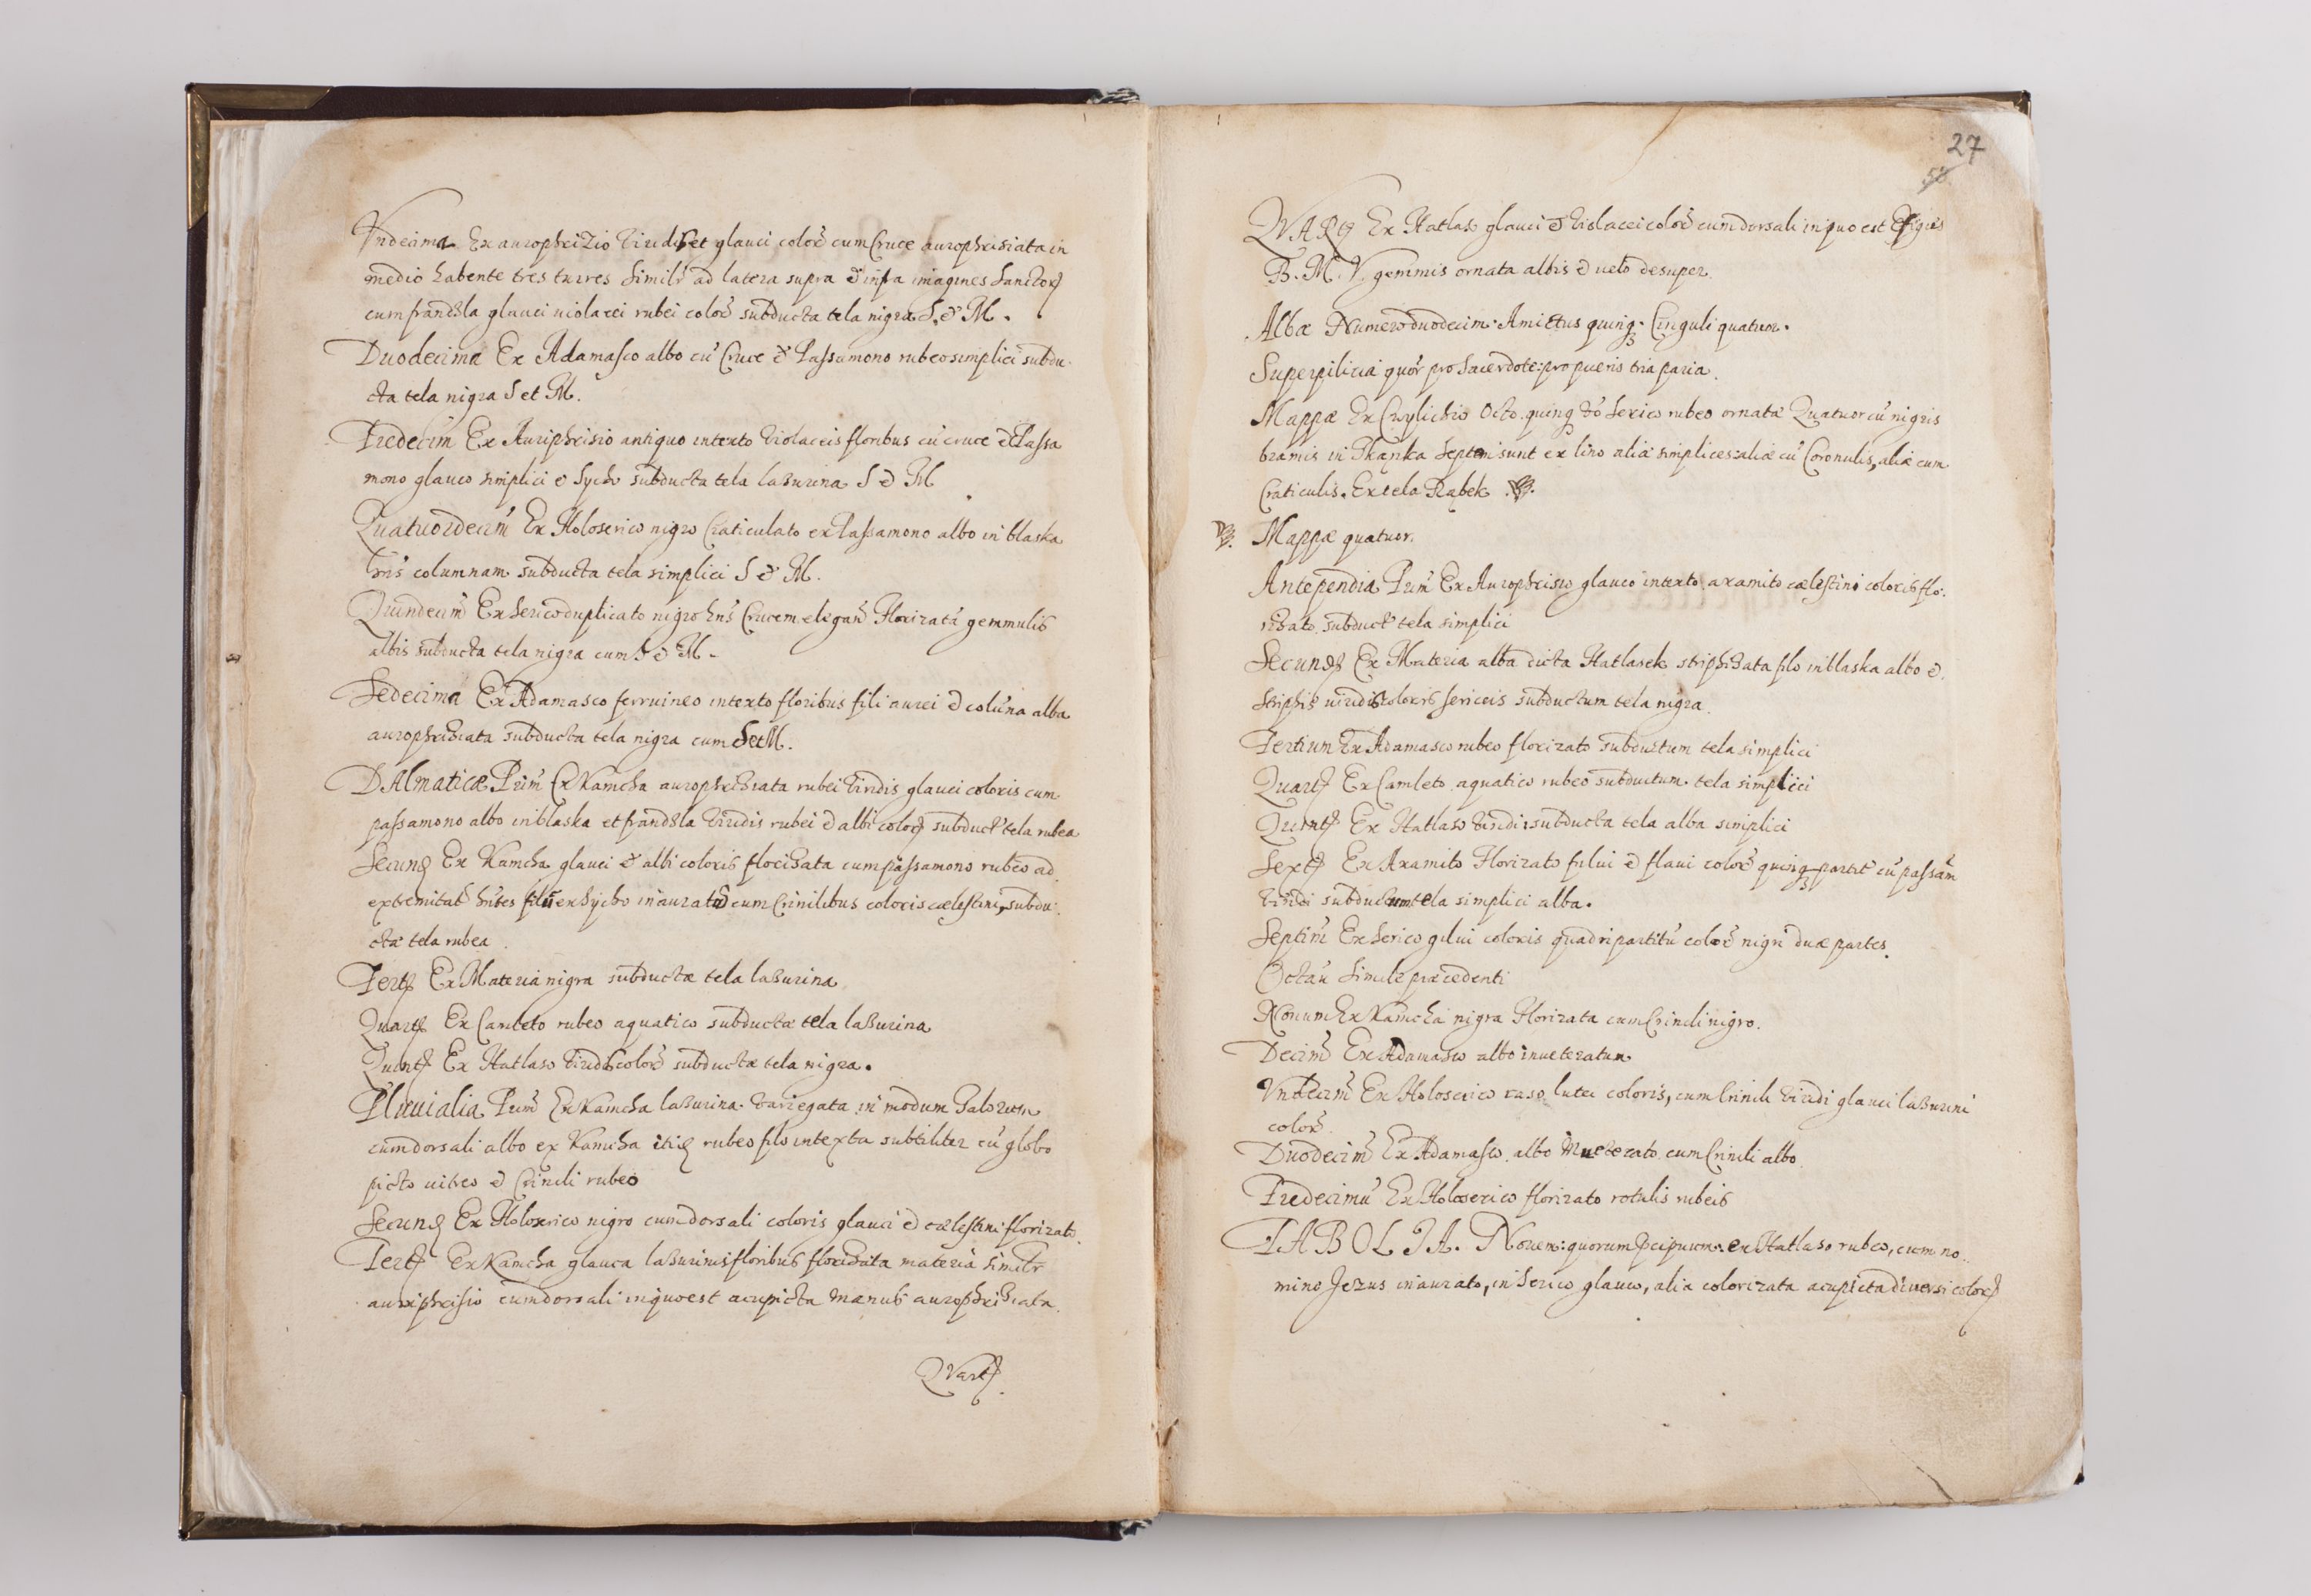 Vndecima Ex aurophrizio viridis et glauci color̃ cum Cruce aurophrisiata in
medio habente tres turres simil'r ad latera supra & infra imagines Sanctorꝝ
cum frandzla glauci violacei rubei color̃ subducta tela nigra S. & M.
Duodecima Ex Adamasco albo cũ Cruce & Passamono rubeo simplici subdu-
cta tela nigra S et M.
Tredecim̃ Ex Auriphrisio antiquo intexto violaceis floribus cũ cruce & Passa
mono glauco simplici e Sycho subducta tela lazurina S & M
Quatuordecim̃ Ex Holoserico nigro Craticulato ex Passamono albo in blaska
hñs columnam subducta tela simplici S & M.
Quindecim̃ Ex Serico duplicato nigro hñs Crucem elegañ Florizatã gemmulis
albis subducta tela nigra cum S & M.
Sedecima Ex Adamasco ferruineo intexto floribus fili aurei & colũna alba
aurophrisiata subducta tela nigra cum S et M.
DAlmaticæ Prim̃ Ex Kamcha aurophrisiata rubei viridis glauci coloris cum
passamono albo in blaska et frandzla viridis rubei & albi colorꝝ subduct' tela rubea
Secunđ Ex Kamcha glauci & albi coloris florizata cum passamono rubeo ad
extremitat' hñtes filũ ex Sycho inauratũ & cum Crinilibus coloris cælestini, subdu-
ctæ tela rubea.
Tertꝝ Ex Materia nigra subductæ tela lazurina
Quartꝝ Ex Camleto rubeo aquatico subductæ tela lazurina
Quintꝝ Ex Hatlaso viridis color̃ subductæ tela nigra.
Pluuialia Prim̃ Ex Kamcha lazurina variegata in modum
cum dorsali albo ex Kamcha rubeo filo intexta subtiliter cũ globo
picto vitreo & Crinili rubeo
Secunđ Ex Holoserico nigro cum dorsali coloris glauci & cælestini florizato.
Tertꝝ Ex Kamcha glauca lazurinis floribus florizata materia simil'r
auriphrisio cum dorsali in quo est acupicta Manus aurophrisiata.
QVartꝝ.
27
58
QVARtꝝ Ex Hatlaso glauci & violacei color̃ cum dorsali in quo est Effigies
B. M. V. gemmis ornata albis & uelo desuper.
Albæ Numero duodecim. Amictus quinqꝫ. Cinguli quatuor.
Superpilicia quõr pro Sacerdote: pro pueris tria paria.
Mappæ Ex Cwylichio Octo. quinqꝫ vò Serico rubeo ornatæ Quatuor cũ nigris
bramis in Tkanka Septem sunt ex lino aliæ simplices: aliæ cũ Coronulis, aliæ cum
Craticulis. Ex tela Rąbek.
Mappæ quatuor.
Antependia Prim̃ Ex Aurophrisio glauco intexto axamito cælestini coloris flo-
rizato subduct' tela simplici
Secundꝝ Ex Materia alba dicta Hatlasek striphizata filo in blaska albo &
striphis viridis coloris sericeis subductum tela nigra.
Tertium Ex Adamasco rubeo florizato subductum tela simplici
Quartꝝ Ex Camleto aquatico rubeo subductum tela simplici
Quintꝝ Ex Hatlaso viridi subducta tela alba simplici
Sextꝝ Ex Axamito Florizato fului & flaui color̃ quinqꝫ partit' cũ passam̃
viridi subductum tela simplici alba.
Septim̃ Ex Serico gilui coloris quadripartitũ color̃ nigri duæ partes.
Octãu Simile præcedenti
Nonum Ex Kamcha nigra Florizata cum Crinili nigro.
Decim̃ Ex Adamasco albo inueteratum
Vndecim̃ Ex Holoserico raso lutei coloris, cum Crinili viridi glauci lazurini
color̃.
Duodecim̃ Ex Adamasco albo inueterato cum Crinili albo.
Tredecimũ Ex Holoserico florizato rotulis rubeis
TABOLIA. Nouem: quorum p̃cipuum: ex Hatlaso rubeo, cum no-
mine Jezus inaurato, in Serico glauco, alia colorizata acupicta diuersi colorꝝ